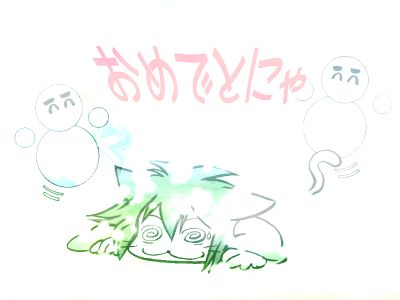 おめでとにゃ